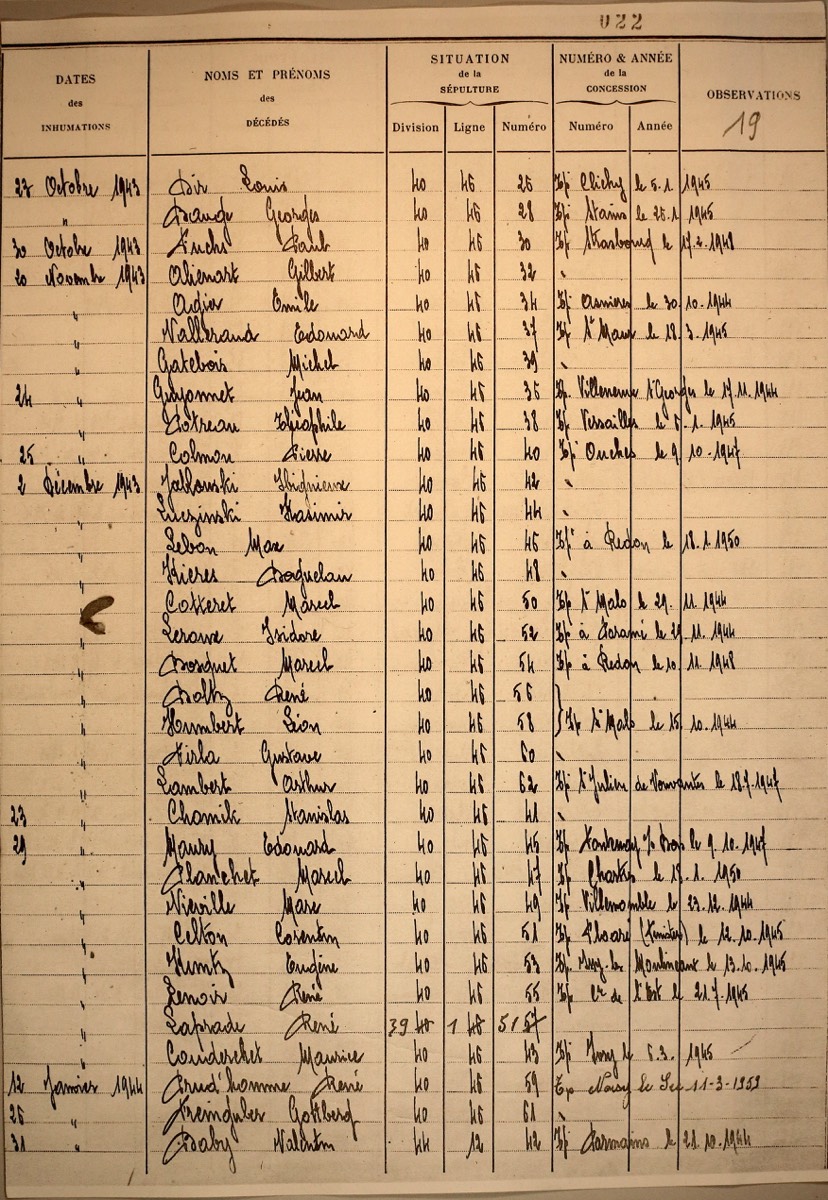 022
DATES des INHUMATIONS
NOMS ET PRÉNOMS des DÉCÉDÉS
SITUATION de la SÉPULTURE
NUMÉRO & ANNÉE de la CONCESSION
OBSERVATIONS
19
Division Ligne Numéro Numéro Année
27 Octobre 1943 Dir Louis 40 46 26 Tp Clichy le 5.1 1945
" Dauge Georges 40 46 28 Tp Stains le 25.1 1945
30 Octobre 1943 Fuchs Paul 40 46 30 Tp Strasbourg le 17.2.1948
20 Novembre 1943 Alienart Gilbert 40 46 32 "
" Adier Emile 40 46 34 Tp Asnieres le 30.10.1944
" Vallerand Edouard 40 46 37 Tp St Maur le 18.3.1945
" Gatebois Michel 40 46 39 "
24 " Guyonnet Jean 40 46 36 Tp. Villeneuve St Georges le 17.11.1944
" Potreau Théophile 40 46 38 Tp Versailles le 5.1.1945
25 " Colmon Pierre 40 46 40 Tp Ouches le 9 10.1947
2 Décembre 1943 Jablowski 40 46 42 "
" Luczinski Kasimir 40 46 44 "
" Lebon Max 40 46 46 Tpt à Redon le 18.1.1950
" 40 46 48 "
" Cotteret Marcel 40 46 50 Tp St Malo le 29. 11.1944
" Leroux Isidore 40 46 52 Tp à Paramé le 29.11.1944
" Bosquet Marcel 40 46 54 Tp à Redon le 10 11.1948
" Boltz René 40 46 56
" Humbert Léon 40 46 58 } Tp St Malo le 15.10.1944
" Gustave 40 46 60 "
" Lambert Arthur 40 46 62 Tp St Julien de Vouvantes le 18.7.1947
23 " Chamik Stanislas 40 46 41 "
29 " Maury Edouard 40 46 45 Tp Fontenay s/s Bois le 9.10.1947
" Planchet Marcel 40 46 47 Tp le 18.1.1950
" Niéville Marc 40 46 49 Tp Villemomble le 23.12.1944
" Celton Corentin 40 46 51 Tp Ploaré (Finistère) le 12.10.1945
" Kuntz Eugène 40 46 53 Tp Issy-les Moulineaux le 13.10.1945
" Lenoir René 40 46 55 Tp Cre de l'Est le 21.7.1945
" Laprade René 39 40 1 46 51 57
" Couderchet Maurice 40 46 43 Tp Ivry le 6.3. 1945
12 Janvier 1944 Prud'homme René 40 46 59 Tp Noisy le Sec 11-3-1953
26 " 40 46 61 "
31 " Baby Valentin 44 12 42 Tp le 21.10.1944